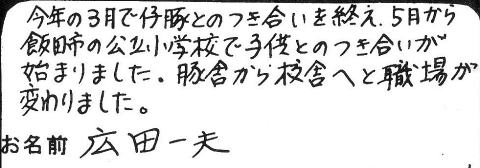 今年の3月で仔豚とのつき合いを終え、5月から
飯田市の公立小学校で子供とのつき合いが
始まりました。豚舎から校舎へと職場が
変わりました。
お名前 広田一夫